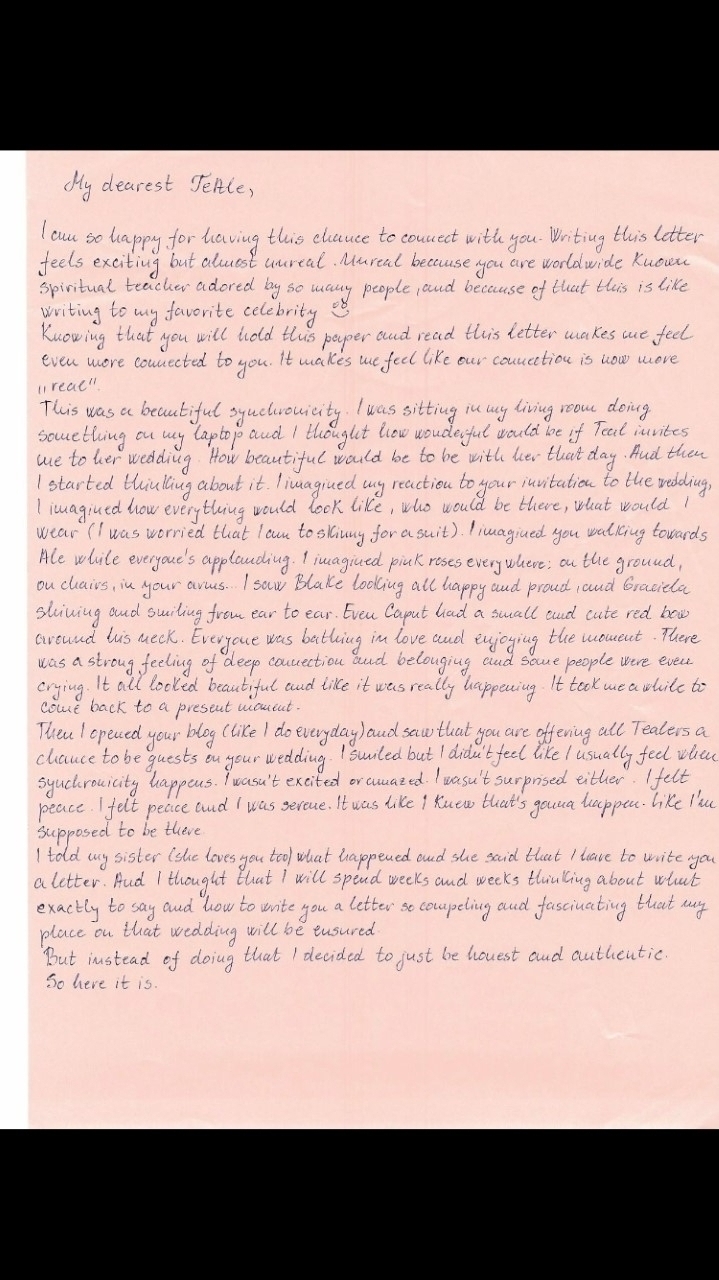 My dearest TeAle,
I am so happy for having this chance to connect with you. Writing this letter
feels exciting but almost unreal. Unreal because you are worldwide known
spiritual teacher adored by so many people, and because of that this is like
writing to my favorite celebrity
Knowing that you will hold this paper and read this letter makes me feel
even more connected to you. It makes me feel like our connection is now more
„real".
This was a beautiful synchronicity. I was sitting in my living room doing
something on my laptop and I thought how wonderful would be if Teal invites
me to her wedding. How beautiful would be to be with her that day. And then
I started thinking about it. I imagined my reaction to your invitation to the wedding,
I imagined how everything would look like, who would be there, what would I
wear (I was worried that I am to skinny for a suit). I imagined you walking towards
Ale while everyone's applauding. I imagined pink roses everywhere; on the ground,
on chairs, in your arms... I saw Blake looking all happy and proud, and Graciela
shining and smiling from ear to ear. Even Caput had a small and cute red bow
around his neck. Everyone was bathing in love and enjoying the moment. There
was a strong feeling of deep connection and belonging and some people were even
crying. It all looked beautiful and like it was really happening. It took me a while to
come back to a present moment.
Then I opened your blog (like I do everyday) and saw that you are offering all Tealers a
chance to be guests on your wedding. I smiled but I didn't feel like I usually feel when
synchronicity happens. I wasn't excited or amazed. I wasn't surprised either. I felt
peace. I felt peace and I was serene. It was like I knew that's gonna happen. Like I'm
supposed to be there.
I told my sister (she loves you too) what happened and she said that I have to write you
a letter. And I thought that I will spend weeks and weeks thinking about what
exactly to say and how to write you a letter so compeling and fascinating that my
place on that wedding will be ensured.
But instead of doing that I decided to just be honest and authentic.
So here it is.